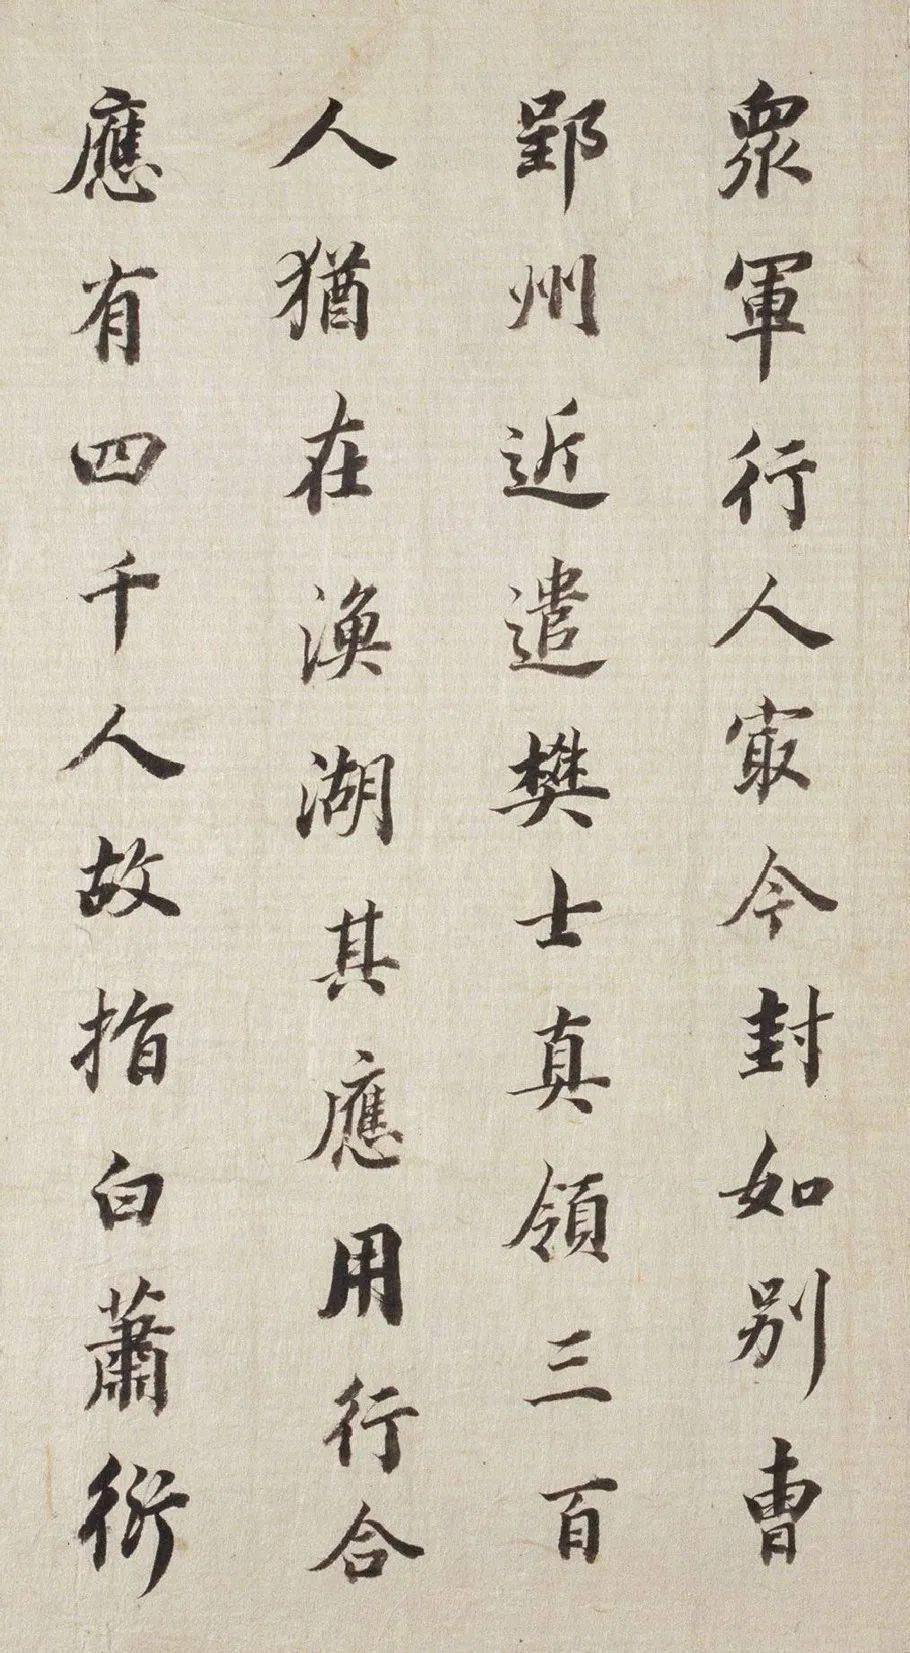 眾軍行人冣今封如别曺
郢州近遣樊士真領三百
人猶在渙湖其應用行合
應有四千人故指白蕭衍